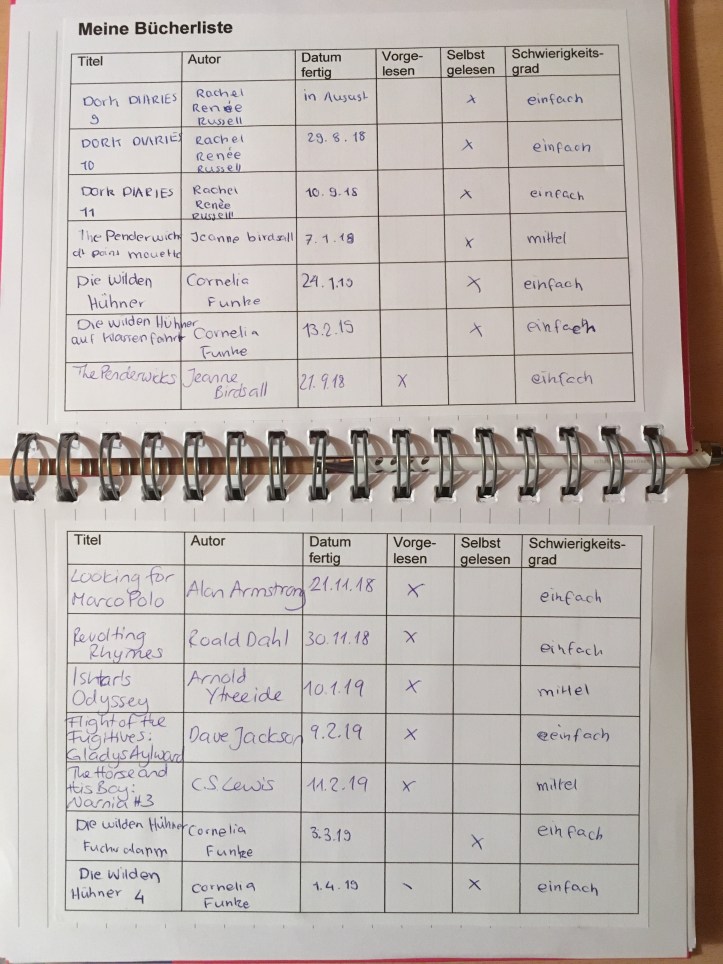 Meine Bücherliste
Titel Autor Datum fertig Vorge-lesen Selbst gelesen Schwierigkeits-grad
Dork DIARIES 9 Rachel Renée Russell in August x einfach
DORK DIARIES 10 Rachel Renée Russell 29.8.18 x einfach
Dork DIARIES 11 Rachel Renée Russell 10.9.18 x einfach
The Penderwicks at point mouette Jeanne birdsall 7.1.19 x mittel
Die Wilden Hühner Cornelia Funke 24.1.19 x einfach
Die wilden Hühner auf Klassenfahrt Cornelia Funke 13.2.19 x einfach
The Penderwicks Jeanne Birdsall 21.9.18 x einfach
Titel Autor Datum fertig Vorge-lesen Selbst gelesen Schwierigkeits-grad
Looking for Marco Polo Alan Armstrong 21.11.18 x einfach
Revolting Rhymes Roald Dahl 30.11.18 x einfach
Ishtar's Odyssey Arnold Ytreeide 10.1.19 x mittel
Flight of the Fugitives: Gladys Aylward Dave Jackson 9.2.19 x eeinfach
The Horse and His Boy: Narnia #3 C.S Lewis 11.2.19 x mittel
Die wilden Hühner Fuchsalarm Cornelia Funke 3.3.19 x einfach
Die Wilden Hühner 4 Cornelia Funke 1.4.19 x einfach